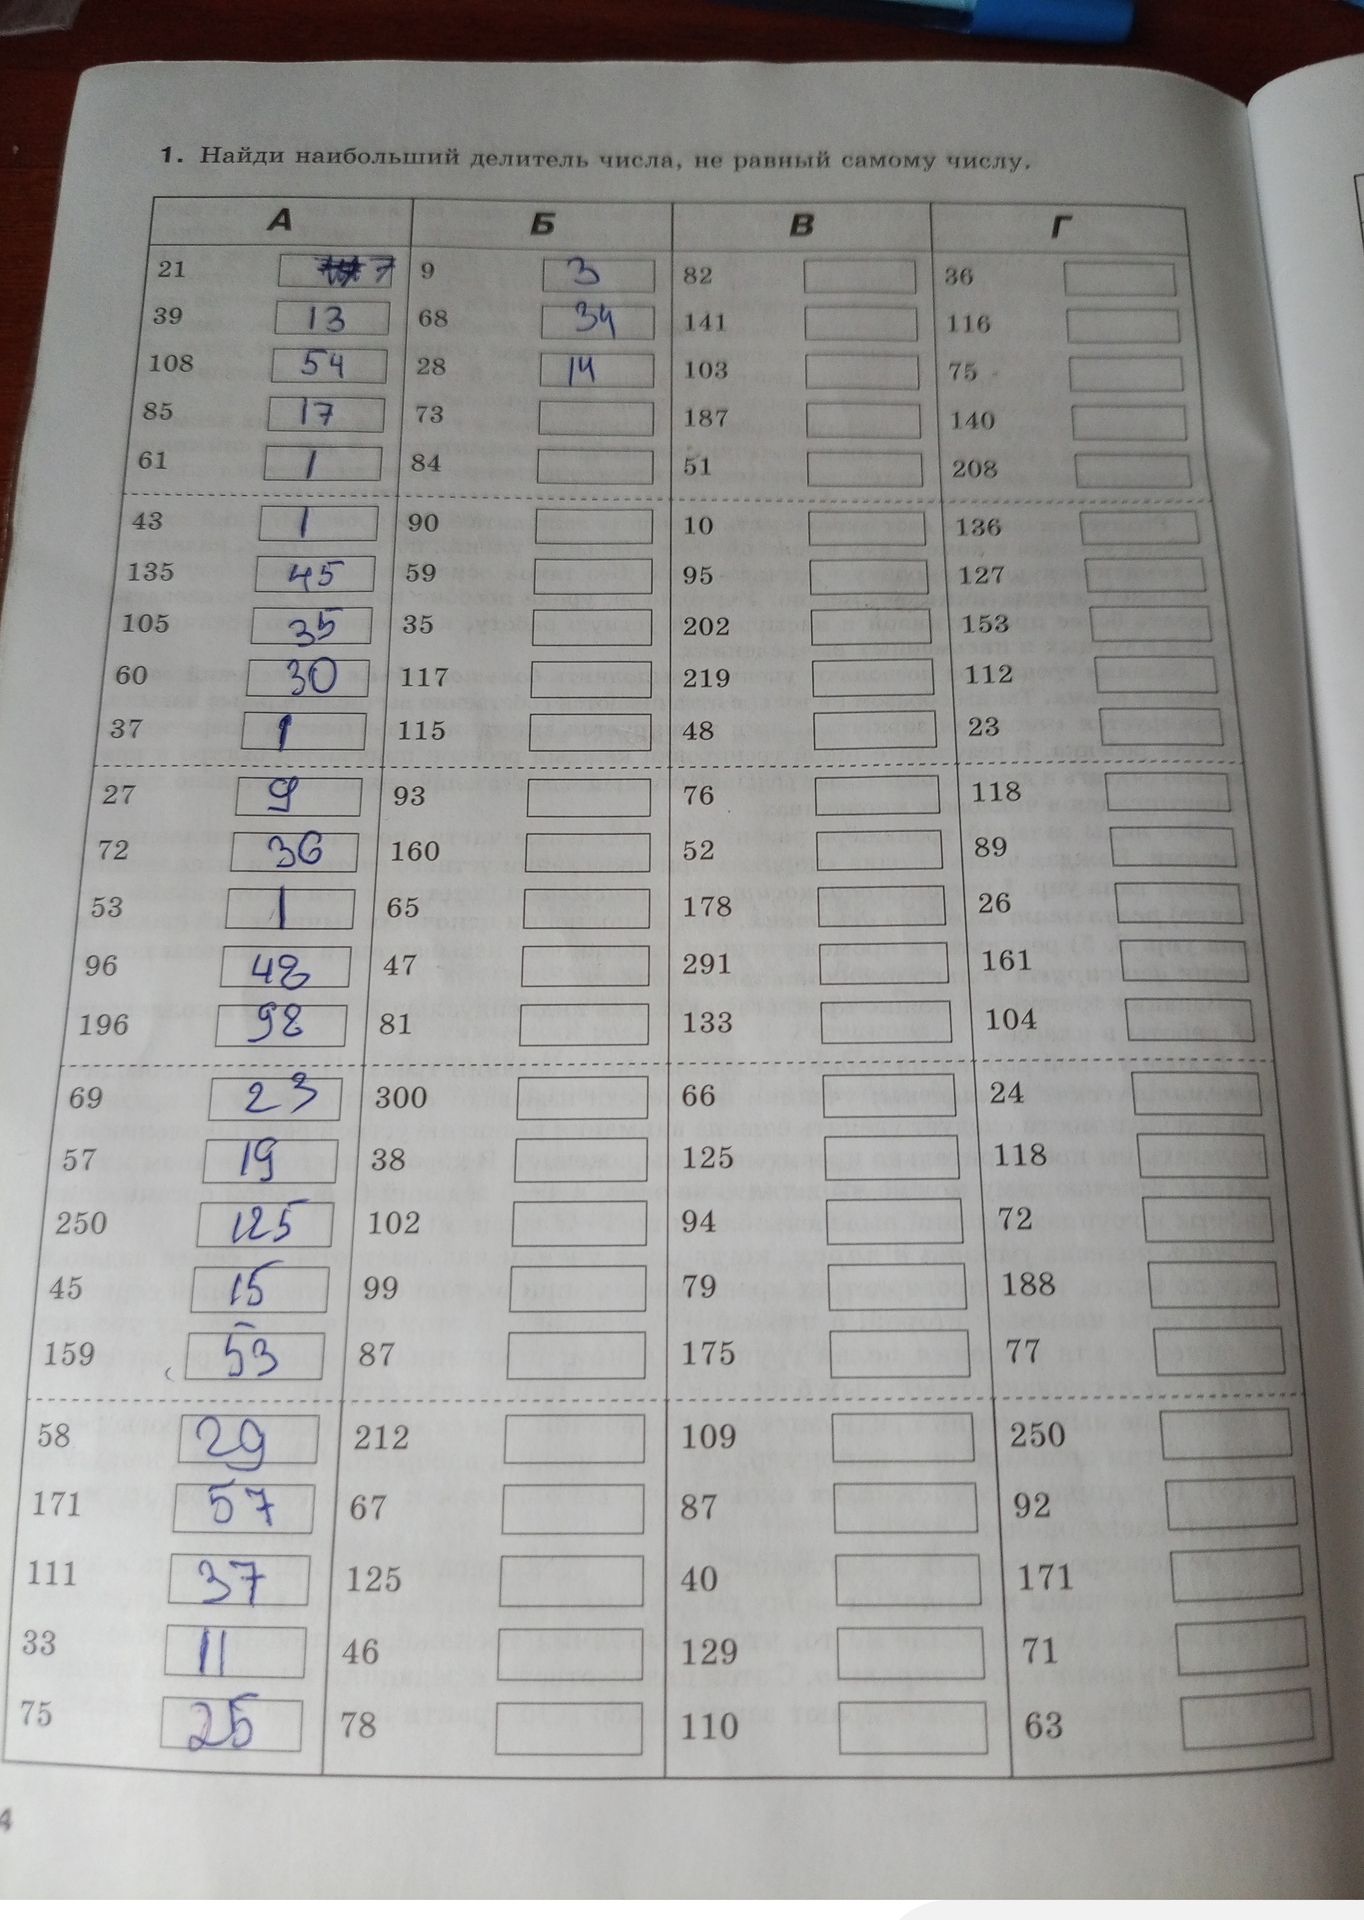 1. Найди наибольший делитель числа, не равный самому числу.
А Б В Г
21 7 9 3 82 36
39 13 68 34 141 116
108 54 28 14 103 75
85 17 73 187 140
61 1 84 51 208
43 1 90 10 136
135 45 59 95 127
105 35 35 202 153
60 30 117 219 112
37 1 115 48 23
27 9 93 76 118
72 36 160 52 89
53 1 65 178 26
96 48 47 291 161
196 98 81 133 104
69 23 300 66 24
57 19 38 125 118
250 125 102 94 72
45 15 99 79 188
159 53 87 175 77
58 29 212 109 250
171 57 67 87 92
111 37 125 40 171
33 11 46 129 71
75 25 78 110 63
4